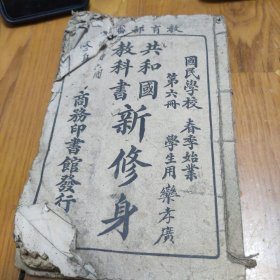 教育部
國民學校 春季始業
第六冊 學生用
樂孝廣
共和國
教科書
新修身
商務印書館發行